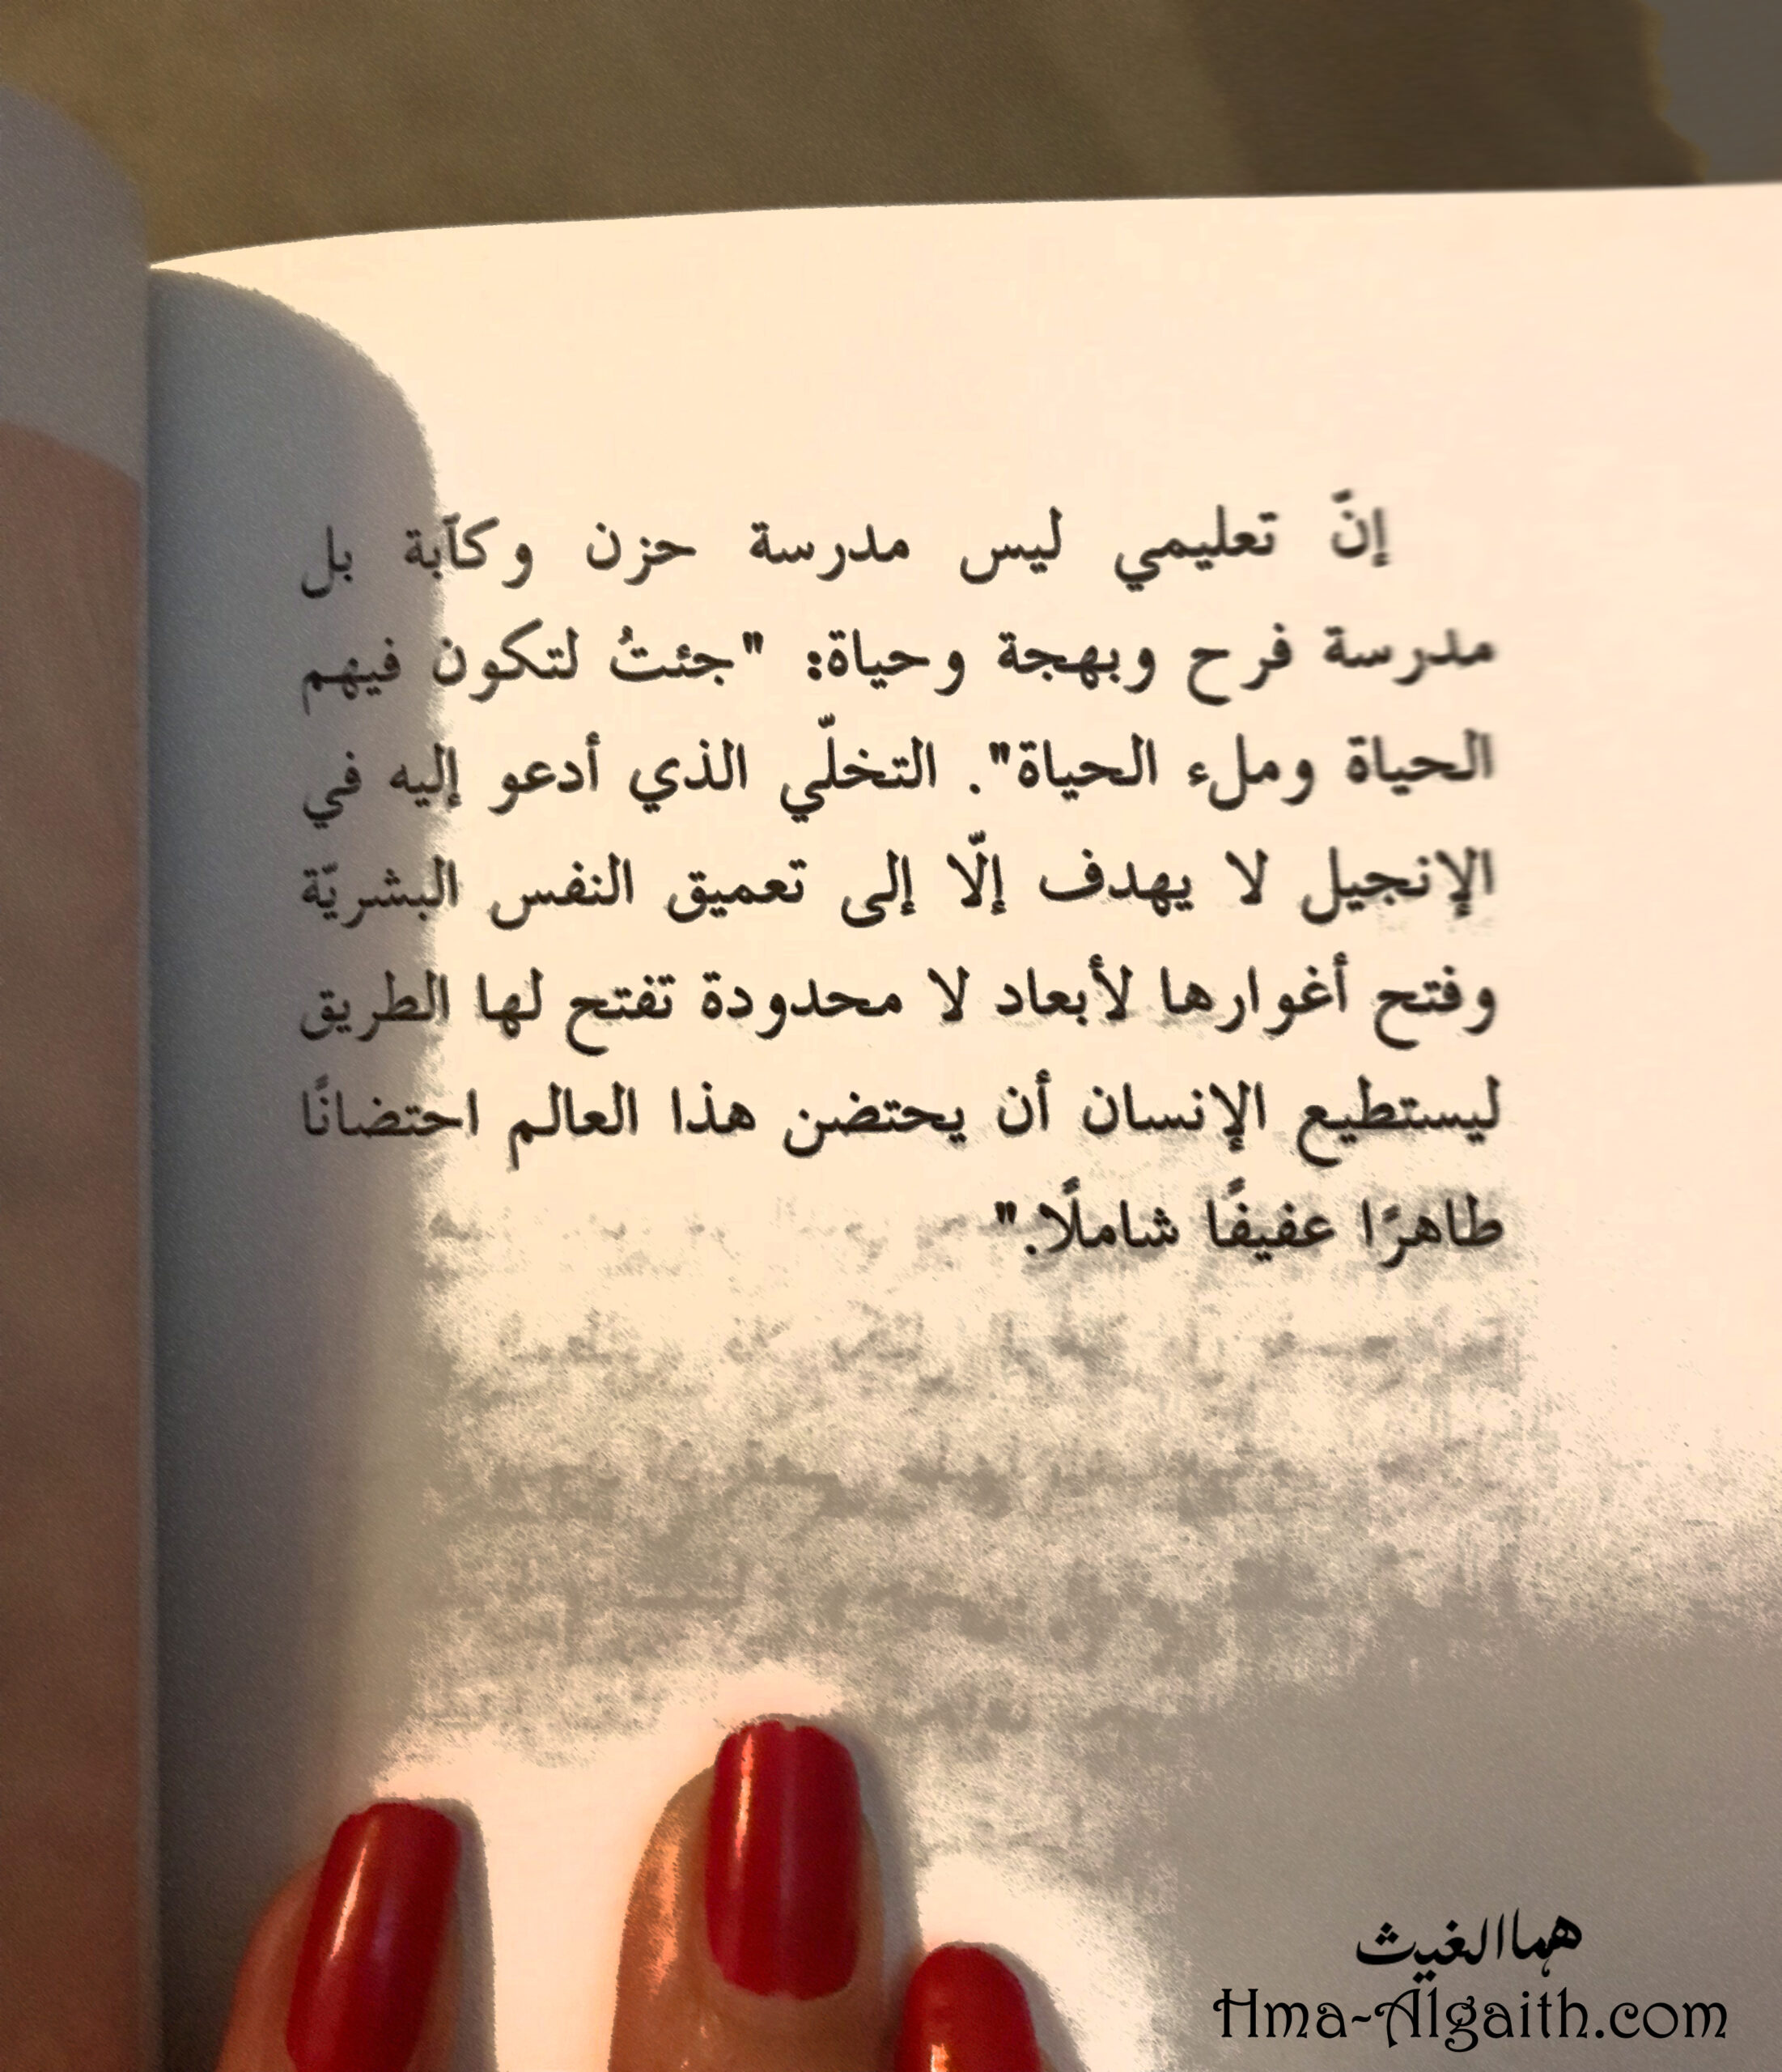 إنّ تعليمي ليس مدرسة حزن وكآبة بل
مدرسة فرح وبهجة وحياة: "جئتُ لتكون فيهم
الحياة وملء الحياة". التخلّي الذي أدعو إليه في
الإنجيل لا يهدف إلّا إلى تعميق النفس البشريّة
وفتح أغوارها لأبعاد لا محدودة تفتح لها الطريق
ليستطيع الإنسان أن يحتضن هذا العالم احتضانًا
طاهرًا عفيفًا شاملًا."
هما الغيث
Hma-Algaith.com